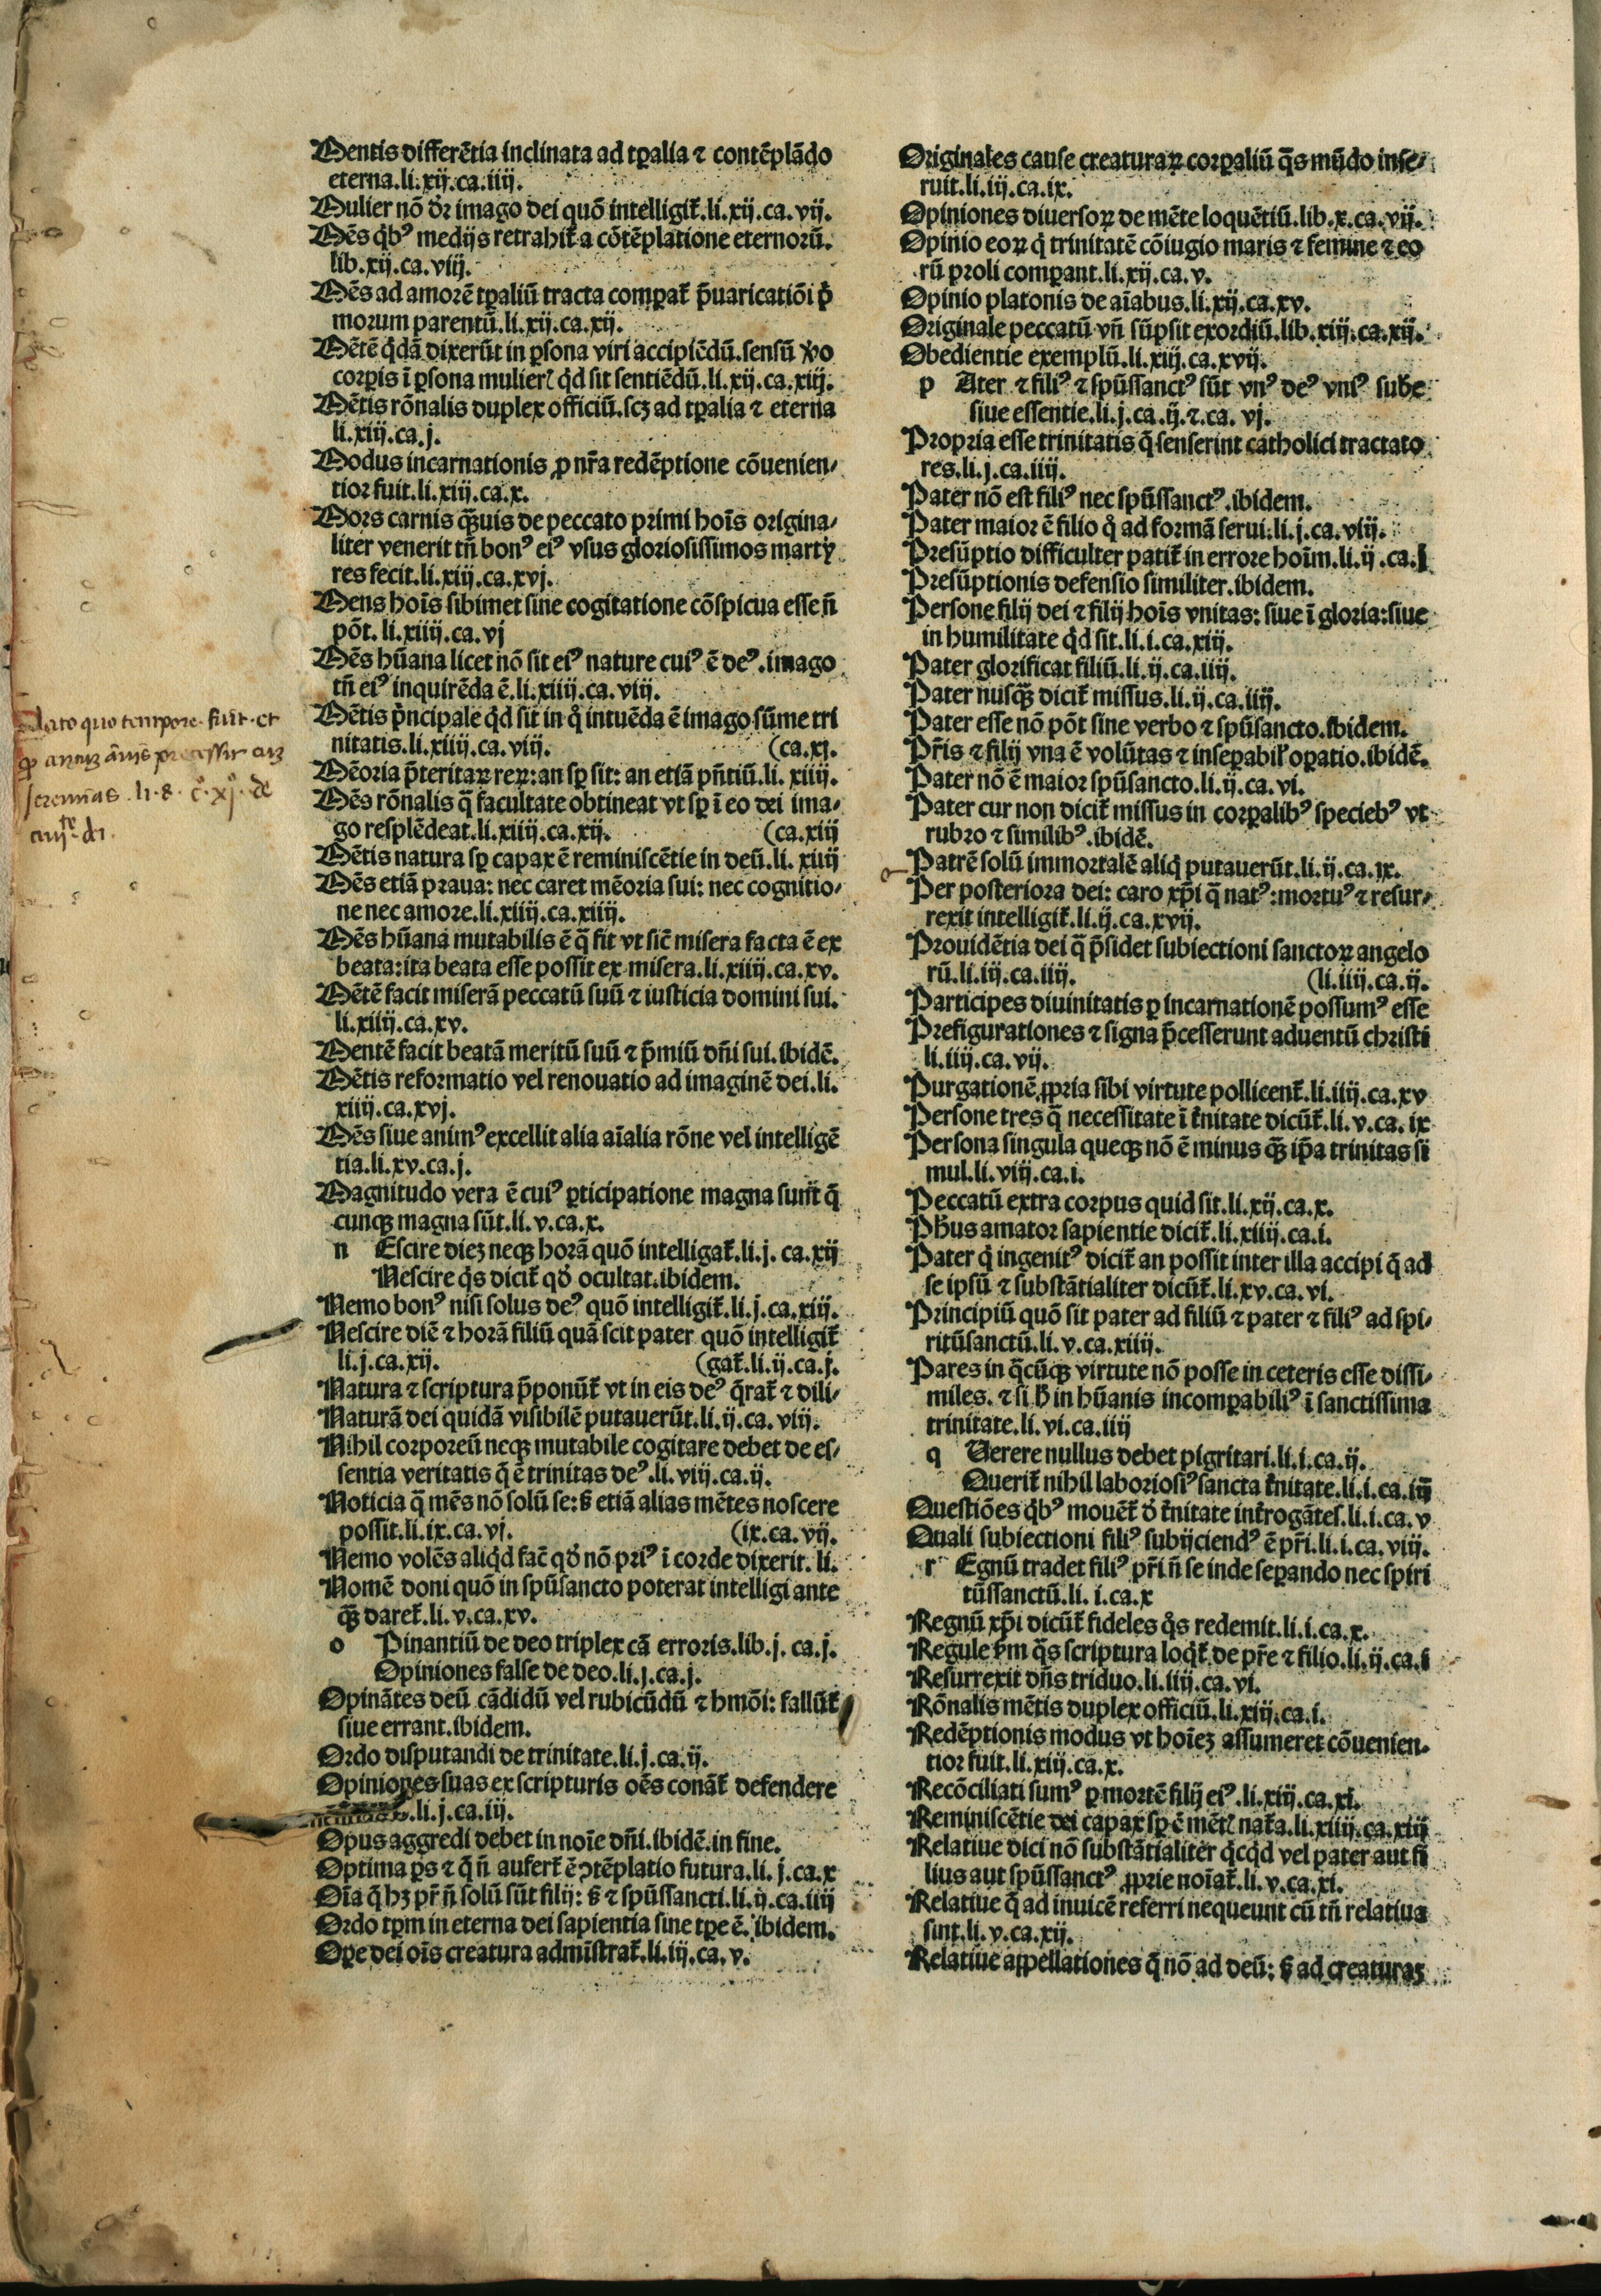 Mentis differẽtia inclinata ad tꝑalia ⁊ contẽplãdo
eterna.li.xij.ca.iiij.
Mulier nõ dr̃ imago dei quõ intelligit̃.li.xij.ca.vij.
Mẽs qͥbꝰ medijs retrahit̃ a cõtẽplatione eternorũ.
lib.xij.ca.viij.
Mẽs ad amorẽ tꝑaliũ tracta comꝑat̃ p̃uaricatiõi pͥ
morum parentũ.li.xij.ca.xij.
Mẽtẽ qͥdã dixerũt in ꝑsona viri accipiẽdũ.sensũ ꝟo
corꝑis ĩ ꝑsona mulierꝭ qͥd sit sentiẽdũ.li.xij.ca.xiij.
Mẽtis rõnalis duplex officiũ.scꝫ ad tꝑalia ⁊ eterna
li.xiij.ca.j.
Modus incarnationis ꝓ nr̃a redẽptione cõuenien⸗
tior fuit.li.xiij.ca.x.
Mors carnis qꝫ̃uis de peccato primi hoĩs origina⸗
liter venerit tñ bonꝰ eiꝰ vsus gloriosissimos marty
res fecit.li.xiij.ca.xvj.
Mens hoĩs sibimet sine cogitatione cõspicua esse ñ
põt. li.xiiij.ca.vj
Mẽs hũana licet nõ sit eiꝰ nature cuiꝰ ẽ deꝰ.imago
tñ eiꝰ inquirẽda ẽ.li.xiiij.ca.viij.
Mẽtis pͥncipale qͥd sit in qͦ intuẽda ẽ imago sũme tri
nitatis.li.xiiij.ca.viij. (ca.xj.
Mẽoria p̃teritaꝝ reꝝ: an sꝑ sit: an etiã pñtiũ.li. xiiij.
Mẽs rõnalis q̃ facultate obtineat vt sꝑ ĩ eo dei ima⸗
go resplẽdeat.li.xiiij.ca.xij. (ca.xiij
Mẽtis natura sꝑ capax ẽ reminiscẽtie in deũ.li. xiiij
Mẽs etiã praua: nec caret mẽoria sui: nec cognitio⸗
ne nec amore.li.xiiij.ca.xiiij.
Mẽs hũana mutabilis ẽ q̃ fit vt sic̃ misera facta ẽ ex
beata:ita beata esse possit ex misera.li.xiiij.ca.xv.
Mẽtẽ facit miserã peccatũ suũ ⁊ iusticia domini sui.
li.xiiij.ca.xv.
Mentẽ facit beatã meritũ suũ ⁊ p̃miũ dñi sui.ibidẽ.
Mẽtis reformatio vel renouatio ad imaginẽ dei.li.
xiiij.ca.xvj.
Mẽs siue animꝰ excellit alia aĩalia rõne vel intelligẽ
tia.li.xv.ca.j.
Magnitudo vera ẽ cuiꝰ ꝑticipatione magna sunt q̃
cunqꝫ magna sũt.li.v.ca.x.
n Escire dieꝫ neqꝫ horã quõ intelligat̃.li.j. ca.xij
Nescire qͥs dicit̃ qđ ocultat.ibidem.
Nemo bonꝰ nisi solus deꝰ quõ intelligit̃.li.j.ca.xiij.
Nescire diẽ ⁊ horã filiũ quã scit pater quõ intelligit̃
li.j.ca.xij. (gat̃.li.ij.ca.j.
Natura ⁊ scriptura p̃ponũt̃ vt in eis deꝰ q̃rat̃ ⁊ dili⸗
Naturã dei quidã visibilẽ putauerũt.li.ij.ca.viij.
Nihil corporeũ neqꝫ mutabile cogitare debet de es⸗
sentia veritatis q̃ ẽ trinitas deꝰ.li.viij.ca.ij.
Noticia q̃ mẽs nõ solũ se: sꝫ etiã alias mẽtes noscere
possit.li.ix.ca.vj. (ix.ca.vij.
Nemo volẽs aliqͥd fac̃ qđ nõ priꝰ ĩ corde dixerit. li.
Nomẽ doni quõ in spũsancto poterat intelligi ante
qꝫ̃ daret̃.li.v.ca.xv.
o Pinantiũ de deo triplex cã erroris.lib.j. ca.j.
Opiniones false de deo.li.j.ca.j.
Opinãtes deũ cãdidũ vel rubicũdũ ⁊ hmõi: fallũt̃
siue errant.ibidem.
Ordo disputandi de trinitate.li.j.ca.ij.
Opiniones suas ex scripturis oẽs conãt̃ defendere
.li.j.ca.iij.
Opus aggredi debet in noĩe dñi.ibidẽ.in fine.
Optima ꝑs ⁊ q̃ ñ aufert̃ ẽ ꝯtẽplatio futura.li. j.ca.x
Oĩa q̃ hꝫ pr̃ ñ solũ sũt filij: sꝫ ⁊ spũssancti.li.ij.ca.iiij
Ordo tꝑm in eterna dei sapientia sine tꝑe ẽ. ibidem.
Oꝑe dei oĩs creatura admĩstrat̃.li.iij.ca.v.
Dato quo tempore fuit et
Jeremias .li.8. c̊.xj. de
Originales cause creaturaꝝ corꝑaliũ q̃s mũdo inse⸗
ruit.li.iij.ca.ix.
Opiniones diuersoꝝ de mẽte loquẽtiũ.lib.x.ca.vij.
Opinio eoꝝ qͥ trinitatẽ cõiugio maris ⁊ femine ⁊ eo
rũ proli comꝑant.li.xij.ca.v.
Opinio platonis de aĩabus.li.xij.ca.xv.
Originale peccatũ vñ sũpsit exordiũ.lib.xiij.ca.xij.
Obedientie exemplũ.li.xiij.ca.xvij.
p Ater ⁊ filiꝰ ⁊ spũssanctꝰ sũt vnꝰ deꝰ vniꝰ sube
siue essentie.li.j.ca.ij.⁊.ca. vj.
Propria esse trinitatis q̃ senserint catholici tractato
res.li.j.ca.iiij.
Pater nõ est filiꝰ nec spũssanctꝰ.ibidem.
Pater maior ẽ filio qͦ ad formã serui.li.j.ca.viij.
Presũptio difficulter patit̃ in errore hoĩm.li.ij.ca.j
Presũptionis defensio similiter.ibidem.
Persone filij dei ⁊ filij hoĩs vnitas: siue ĩ gloria:siue
in humilitate qͥd sit.li.i.ca.xiij.
Pater glorificat filiũ.li.ij.ca.iiij.
Pater nusqꝫ̃ dicit̃ missus.li.ij.ca.iiij.
Pater esse nõ põt sine verbo ⁊ spũsancto.ibidem.
Pr̃is ⁊ filij vna ẽ volũtas ⁊ inseꝑabil̓ oꝑatio.ibidẽ.
Pater nõ ẽ maior spũsancto.li.ij.ca.vi.
Pater cur non dicit̃ missus in corꝑalibꝰ speciebꝰ vt
rubro ⁊ similibꝰ.ibidẽ.
Patrẽ solũ immortalẽ aliqͥ putauerũt.li.ij.ca.ix.
Per posteriora dei: caro xp̃i q̃ natꝰ:mortuꝰ ⁊ resur⸗
rexit intelligit̃.li.ij.ca.xvij.
Prouidẽtia dei q̃ p̃sidet subiectioni sanctoꝝ angelo
rũ.li.iij.ca.iiij. (li.iiij.ca.ij.
Participes diuinitatis ꝑ incarnationẽ possumꝰ esse
Prefigurationes ⁊ signa p̃cesserunt aduentũ christi
li.iiij.ca.vij.
Purgationẽ ꝓpria sibi virtute pollicent̃.li.iiij.ca.xv
Persone tres q̃ necessitate ĩ t̓nitate dicũt̃.li.v.ca. ix
Persona singula queqꝫ nõ ẽ minus qꝫ̃ ip̃a trinitas si
mul.li.viij.ca.i.
Peccatũ extra corpus quid sit.li.xij.ca.x.
Ph̓us amator sapientie dicit̃.li.xiiij.ca.i.
Pater qͥ ingenitꝰ dicit̃ an possit inter illa accipi q̃ ad
se ipsũ ⁊ substãtialiter dicũt̃.li.xv.ca.vi.
Principiũ quõ sit pater ad filiũ ⁊ pater ⁊ filiꝰ ad spi⸗
ritũsanctũ.li.v.ca.xiiij.
Pares in q̃cũqꝫ virtute nõ posse in ceteris esse dissi⸗
miles. ⁊ si h̓ in hũanis incomꝑabiliꝰ ĩ sanctissima
trinitate.li.vi.ca.iiij
q Verere nullus debet pigritari.li.i.ca.ij.
Querit̃ nihil laboriosiꝰ sancta t̓nitate.li.i.ca.iij
Questiões qͥbꝰ mouẽt̃ đ t̓nitate int̓rogãtes.li.i.ca.v
Quali subiectioni filiꝰ subijciendꝰ ẽ pr̃i.li.i.ca.viij.
r Egnũ tradet filiꝰ pr̃i ñ se inde seꝑando nec spiri
tũssanctũ.li. i.ca.x
Regnũ xp̃i dicũt̃ fideles qͦs redemit.li.i.ca.x.
Regule ẜm q̃s scriptura loqͥt̃ de pr̃e ⁊ filio.li.ij.ca.i
Resurrexit dñs triduo.li.iiij.ca.vi.
Rõnalis mẽtis duplex officiũ.li.xiij.ca.i.
Redẽptionis modus vt hoĩeꝫ assumeret cõuenien⸗
tior fuit.li.xiij.ca.x.
Recõciliati sumꝰ ꝑ mortẽ filij eiꝰ.li.xiij.ca.xi.
Reminiscẽtie dei capax sꝑ ẽ mẽtꝭ nat̓a.li.xiiij.ca.xiij
Relatiue dici nõ substãtialiter qͥcqͥd vel pater aut fi
lius aut spũssanctꝰ ꝓprie noĩat̃.li.v.ca.xi.
Relatiue q̃ ad inuicẽ referri nequeunt cũ tñ relatiua
sint.li.v.ca.xij.
Relatiue appellationes q̃ nõ ad deũ: sꝫ ad creaturas